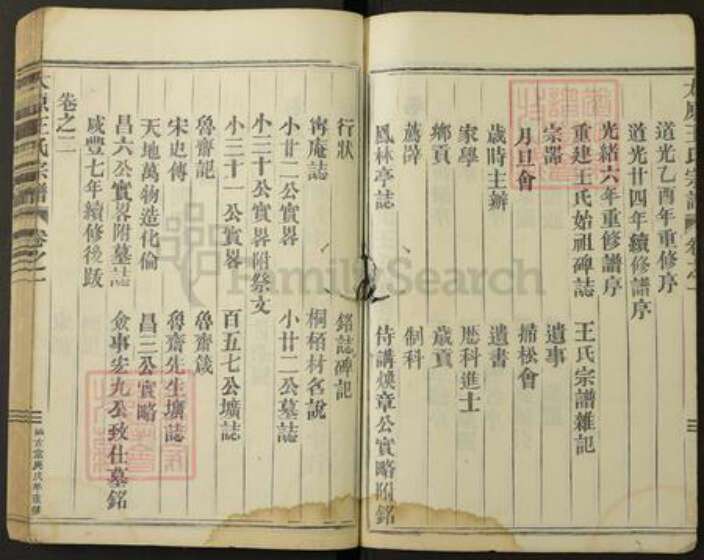 太原王氏宗譜 卷之一
道光乙酉年重修序
道光廿四年續修譜序
光緒六年重修譜序
重建王氏始祖碑誌 王氏宗譜雜記
宗器 遺事
月旦會 掃松會
歲時主辦 遺書
家學 歷科進士
鄉貢 歲貢
薦辟 制科
鳳林亭誌 侍講煥章公實略附銘
行狀 銘誌碑記
甯庵誌 桐栢材名說
小廿二公實畧 小廿二公墓誌
小三十公實畧附祭文
小三十一公實畧 百五七公壙誌
魯齋記 魯齋箴
宋史傳 魯齋先生壙誌
天地萬物造化倫 昌三公實略
昌六公實畧附墓誌 僉事宏九公致仕墓銘
咸豐七年續修後跋
卷之二
太原王氏宗譜 卷之一
FamilySearch